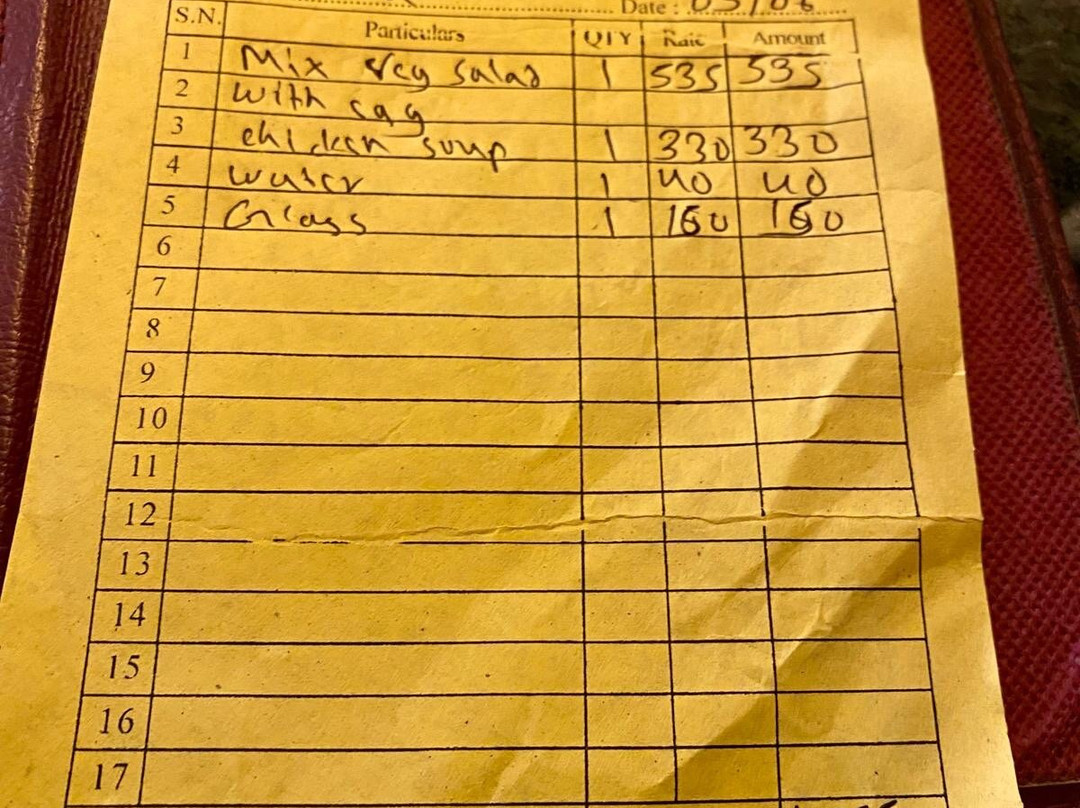 Date : 05/06
S.N. Particulars QTY Rate Amount
1 Mix Veg Salad 1 535 535
2 with egg
3 chicken soup 1 330 330
4 water 1 40 40
5 Glass 1 150 150
6
7
8
9
10
11
12
13
14
15
16
17